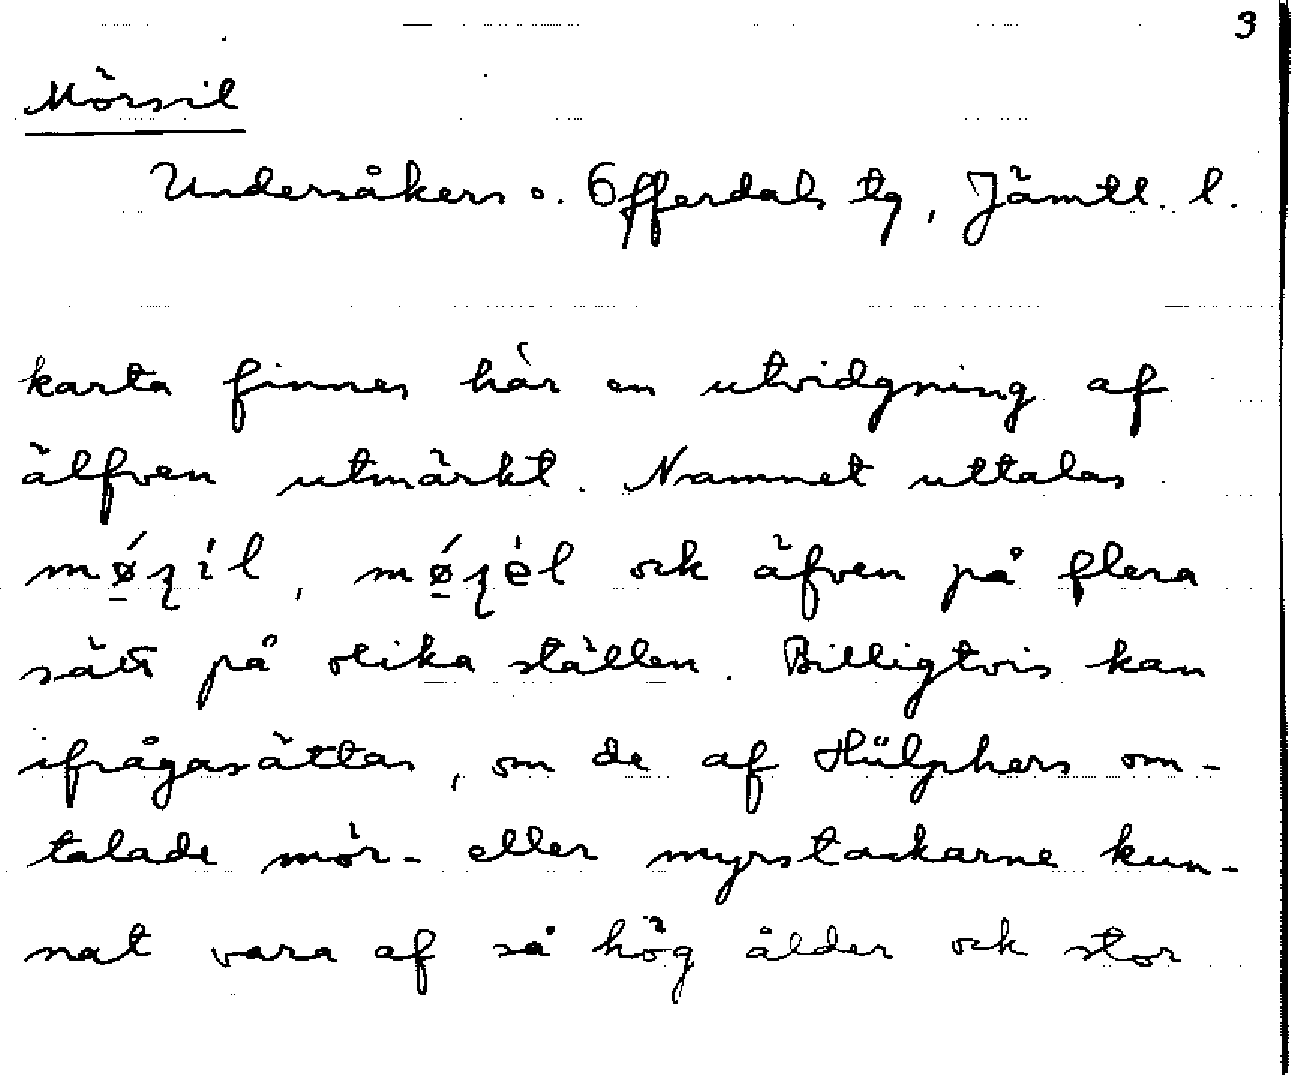 3
Mörsil
Undersåkers o. Offerdals tg, Jämtl. l.
karta finnes här en utvidgning af
älfven utmärkt. Namnet uttalas
ock äfven på flera
sätt på olika ställen. Billigtvis kan
ifrågasättas, om de af Hülphers om-
talade mör- eller myrstackarne kun-
nat vara af så hög ålder ock stor